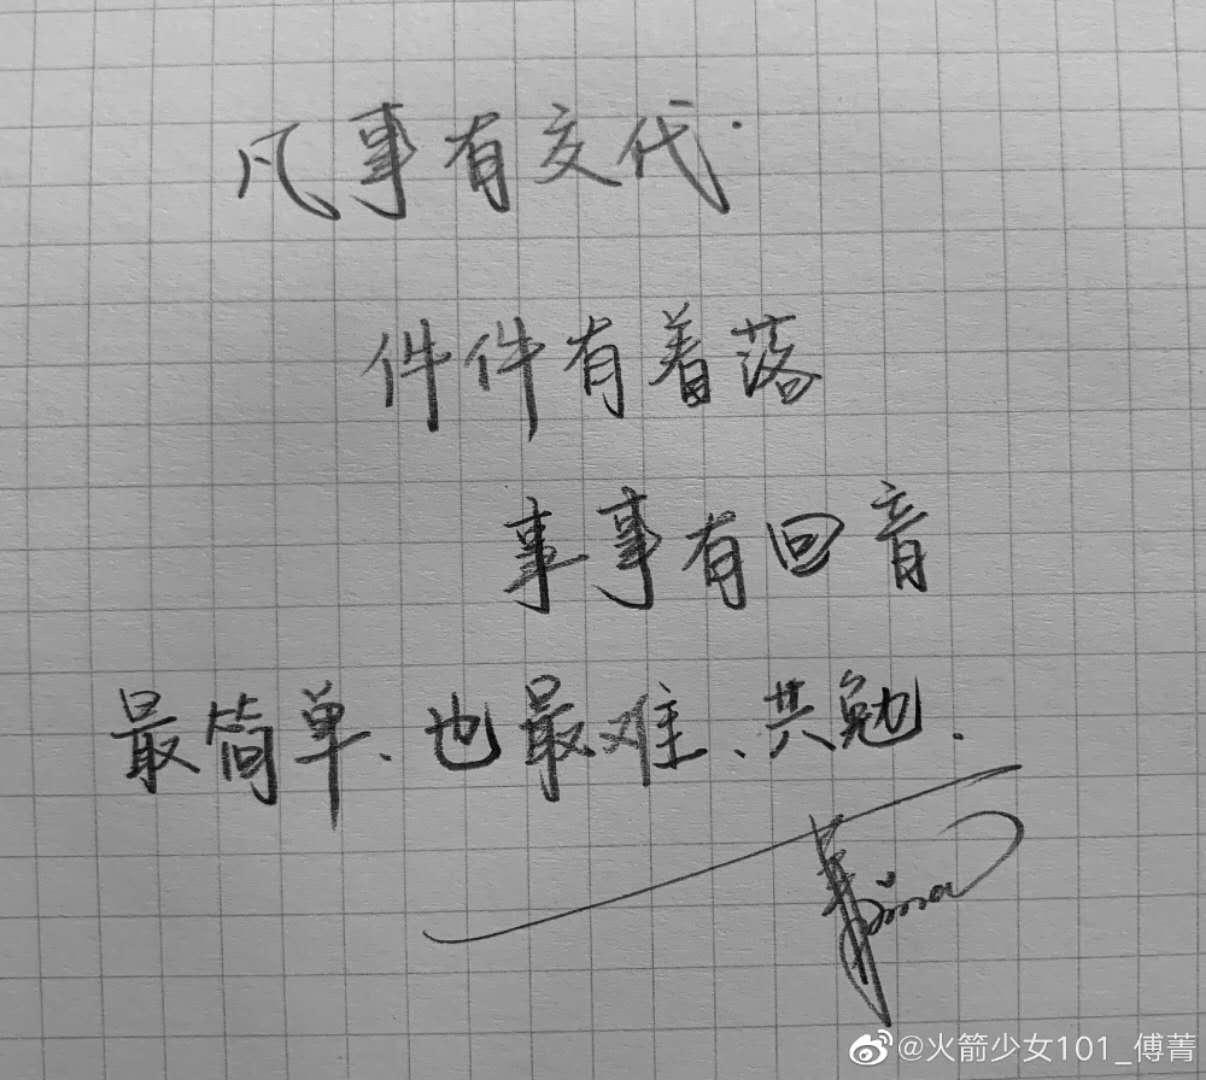 凡事有交代.
件件有着落
事事有回音
最简单、也最难、共勉.
@火箭少女101_傅菁